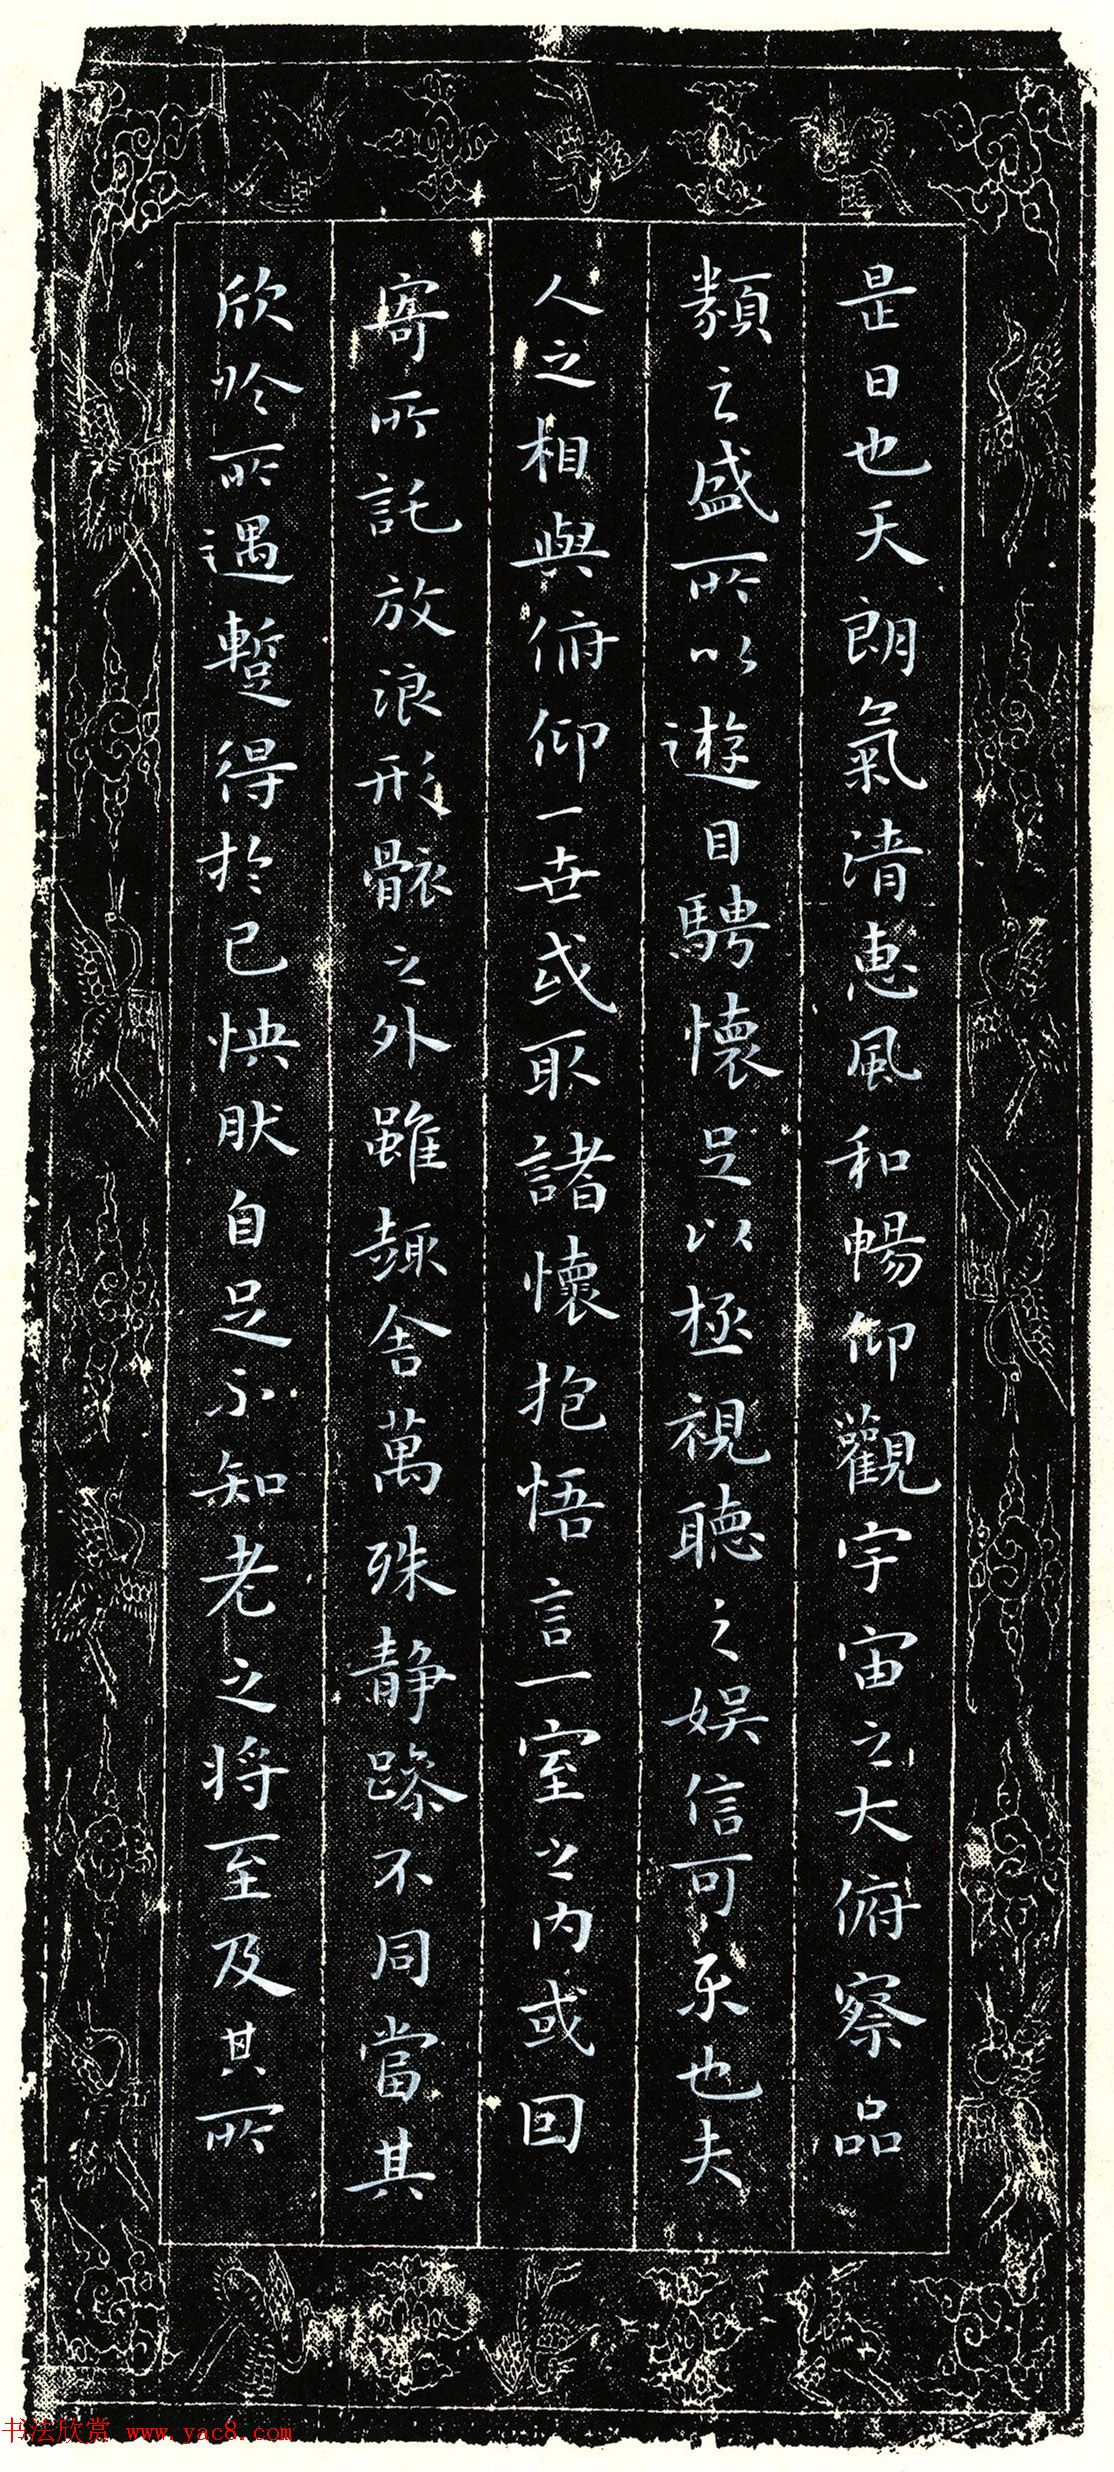 是日也天朗氣清惠風和暢仰觀宇宙之大俯察品
類之盛所以遊目騁懷足以極視聽之娛信可樂也夫
人之相與俯仰一世或取諸懷抱悟言一室之內或回
寄所託放浪形骸之外雖趣舍萬殊静躁不同當其
欣於所遇蹔得於己怏然自足不知老之將至及其所
书法欣赏 www.yac8.com